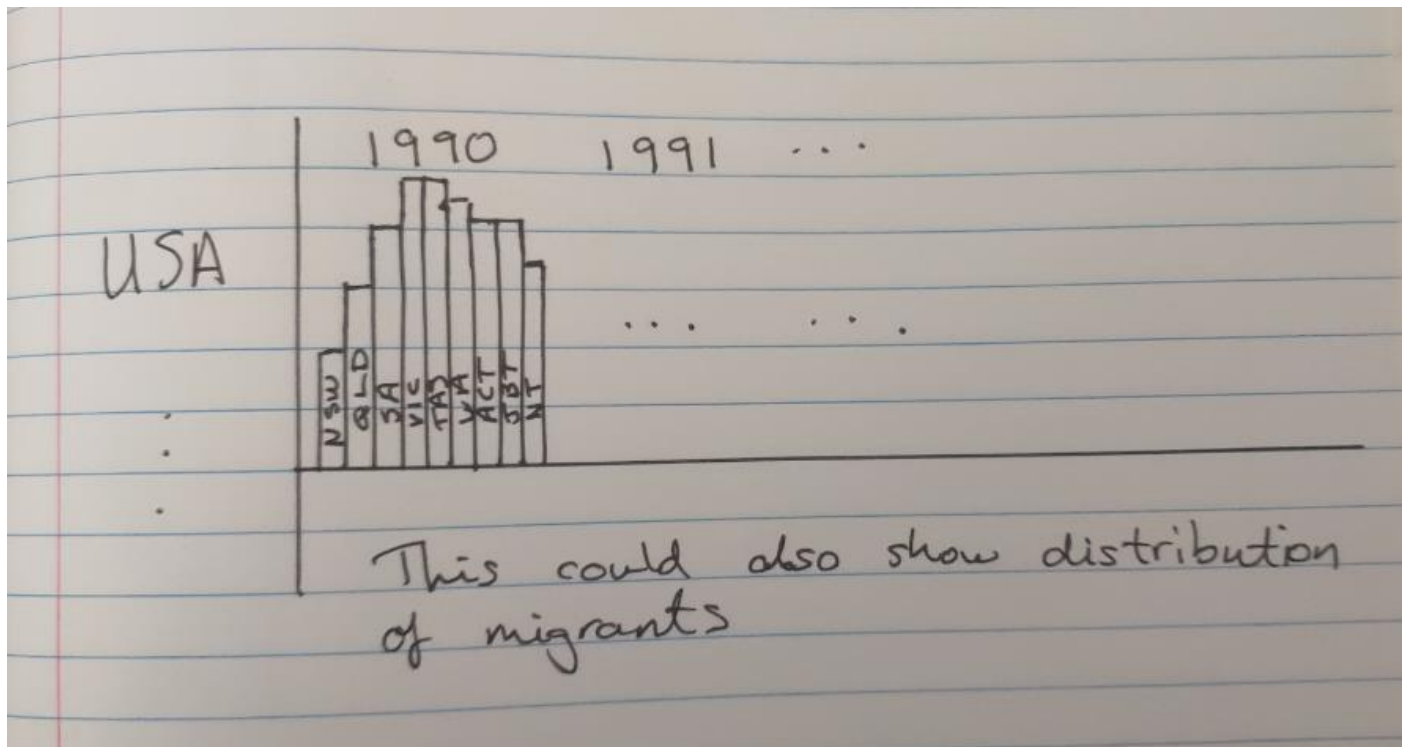 1990 1991 ...
USA
... ...
NSW
QLD
SA
VIC
TAS
WA
ACT
JBT
NT
This could also show distribution
of migrants